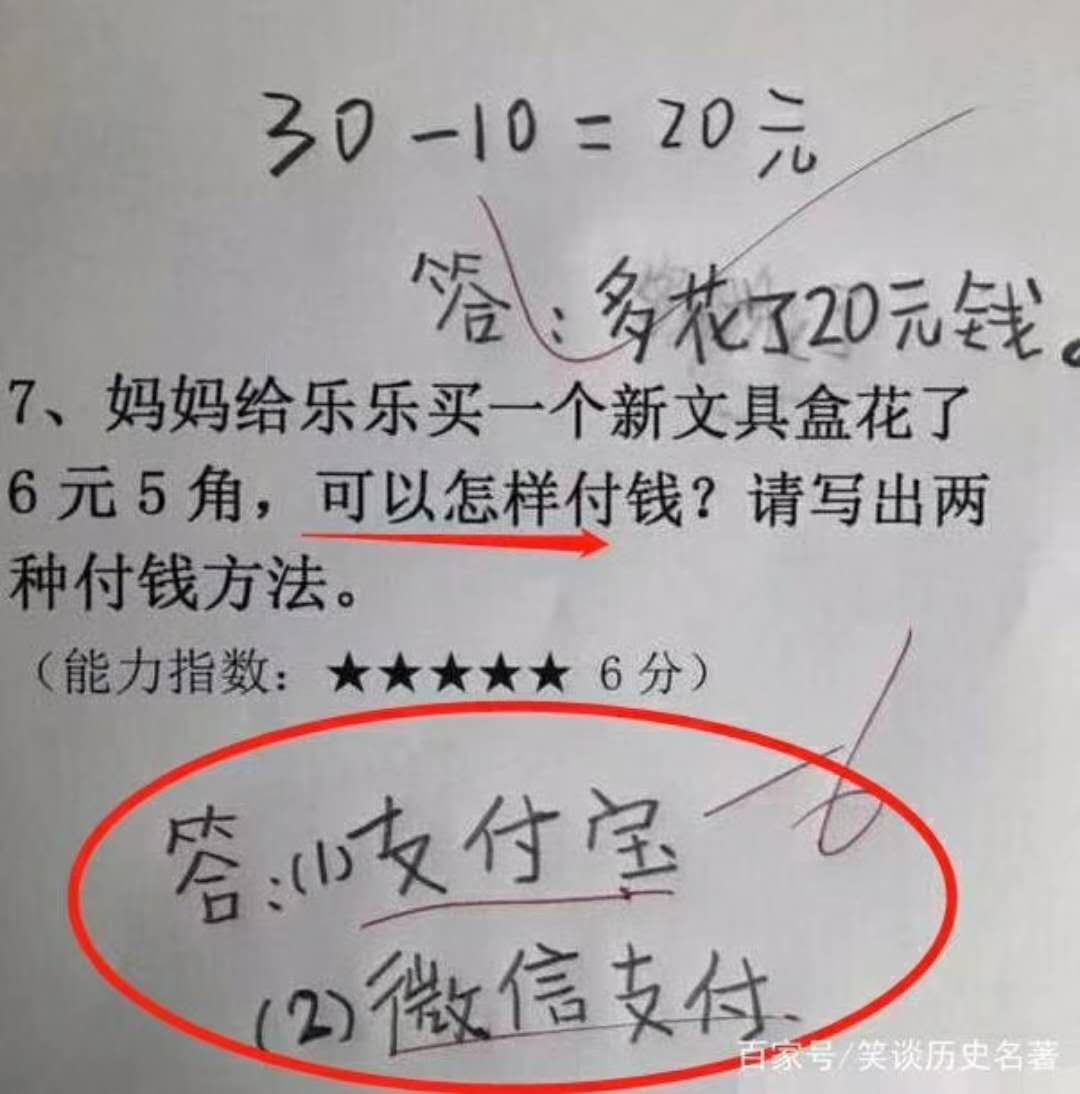 30-10=20元
答：多花了20元钱。
7、妈妈给乐乐买一个新文具盒花了
6元5角，可以怎样付钱？请写出两
种付钱方法。
（能力指数：★★★★★ 6分）
-6
答：(1)支付宝
(2)微信支付.
百家号/笑谈历史名著